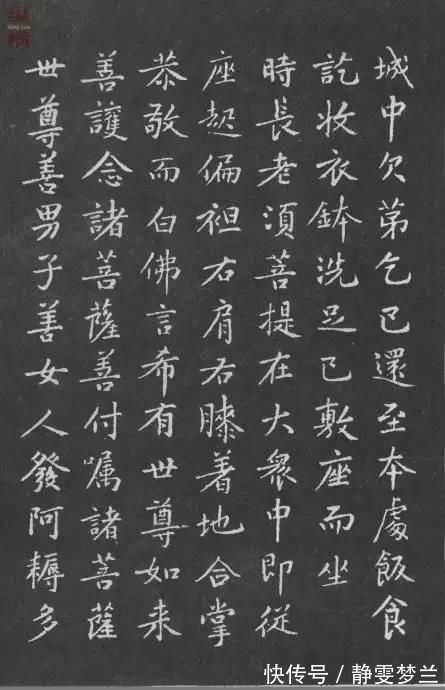 城中次第乞已還至本處飯食
訖收衣鉢洗足已敷座而坐
時長老須菩提在大衆中即從
座起偏袒右肩右膝着地合掌
恭敬而白佛言希有世尊如来
善護念諸菩薩善付嘱諸菩薩
世尊善男子善女人發阿耨多
快传号／静雯梦兰